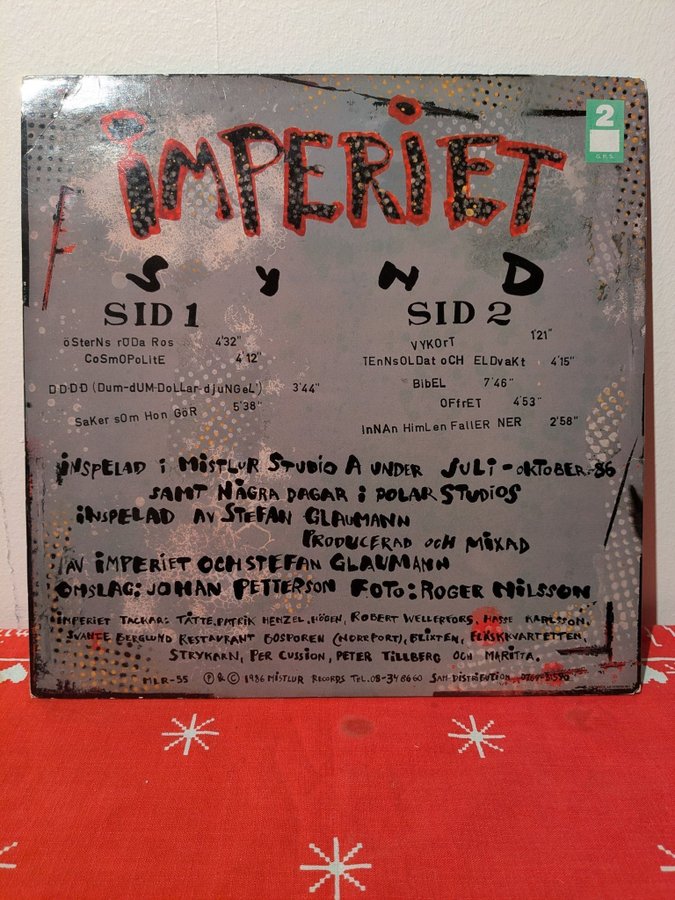 iMPERiET
2
G.P.S.
SYND
SID 1
öSterNs rÖDa Ros 4'32"
CoSmOPoLitE 4'12"
D·D·D·D (Dum-dUM-DoLLar-djuNGeL') 3'44"
SaKer sOm Hon GöR 5'38"
SID 2
VYKOrT 1'21"
TEnNsOLDat oCH ELDvaKt 4'15"
BibEL 7'46"
OFfrET 4'53"
InNAn HimLen FallER NER 2'58"
iNSPELAD i MiSTLUR STUDIO A UNDER JULi-OKTOBER-86
SAMT NÅGRA DAGAR i POLAR STUDiOS
iNSPELAD AV STEFAN GLAUMANN
PRODUCERAD OCH MIXAD
AV iMPERiET OCH STEFAN GLAUMANN
OMSLAG: JOHAN PETTERSON FOTO: ROGER NiLSSON
iMPERiET TACKAR: TÅTTE, PATRIK HENZEL, HÖGEN, ROBERT WELLERFORS, HASSE KARLSSON,
SVANTE BERGLUND RESTAURANT BOSPOREN (NORRPORT), BLIXTEN, FLÄSKKVARTETTEN,
STRYKARN, PER CUSSION, PETER TILLBERG OCH MARITTA.
MLR-55 Ⓟ & © 1986 MISTLUR RECORDS TEL. 08-34 86 60 SAM-DISTRIBUTION